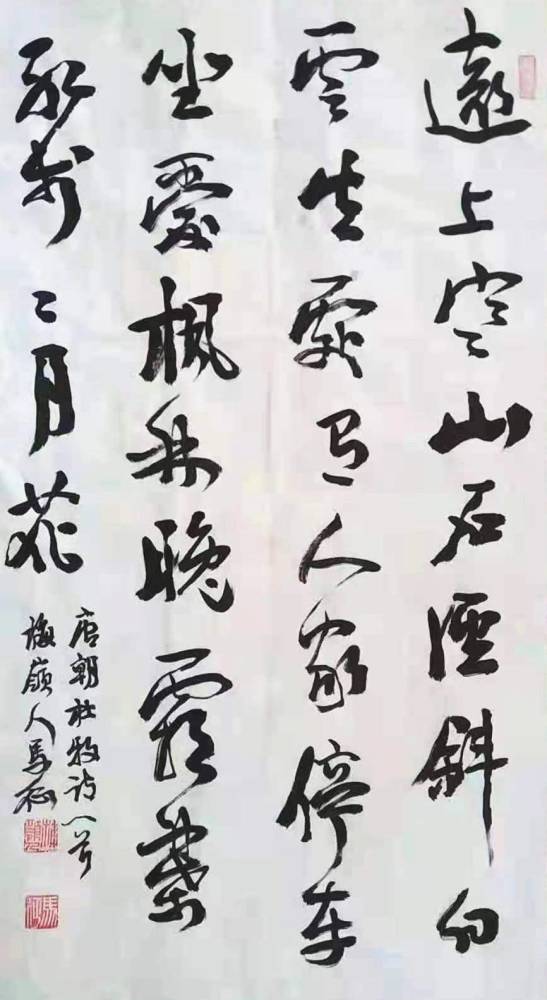 遠上寒山石徑斜白
雲生處有人家停車
坐愛楓林晚霜葉
紅於二月花
唐朝杜牧诗一首
梅嶺人馬